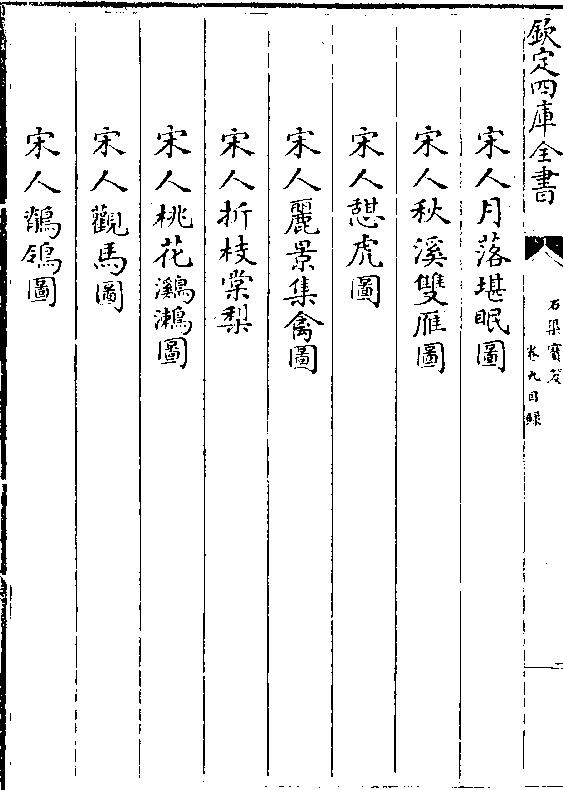 欽定四庫全書
石渠寳笈
卷九目録
宋人月落堪眠圖
宋人秋溪雙雁圖
宋人憇虎圖
宋人麗景集禽圖
宋人折枝棠梨
宋人桃花鸂鶒圖
宋人觀馬圖
宋人鶺鴒圖